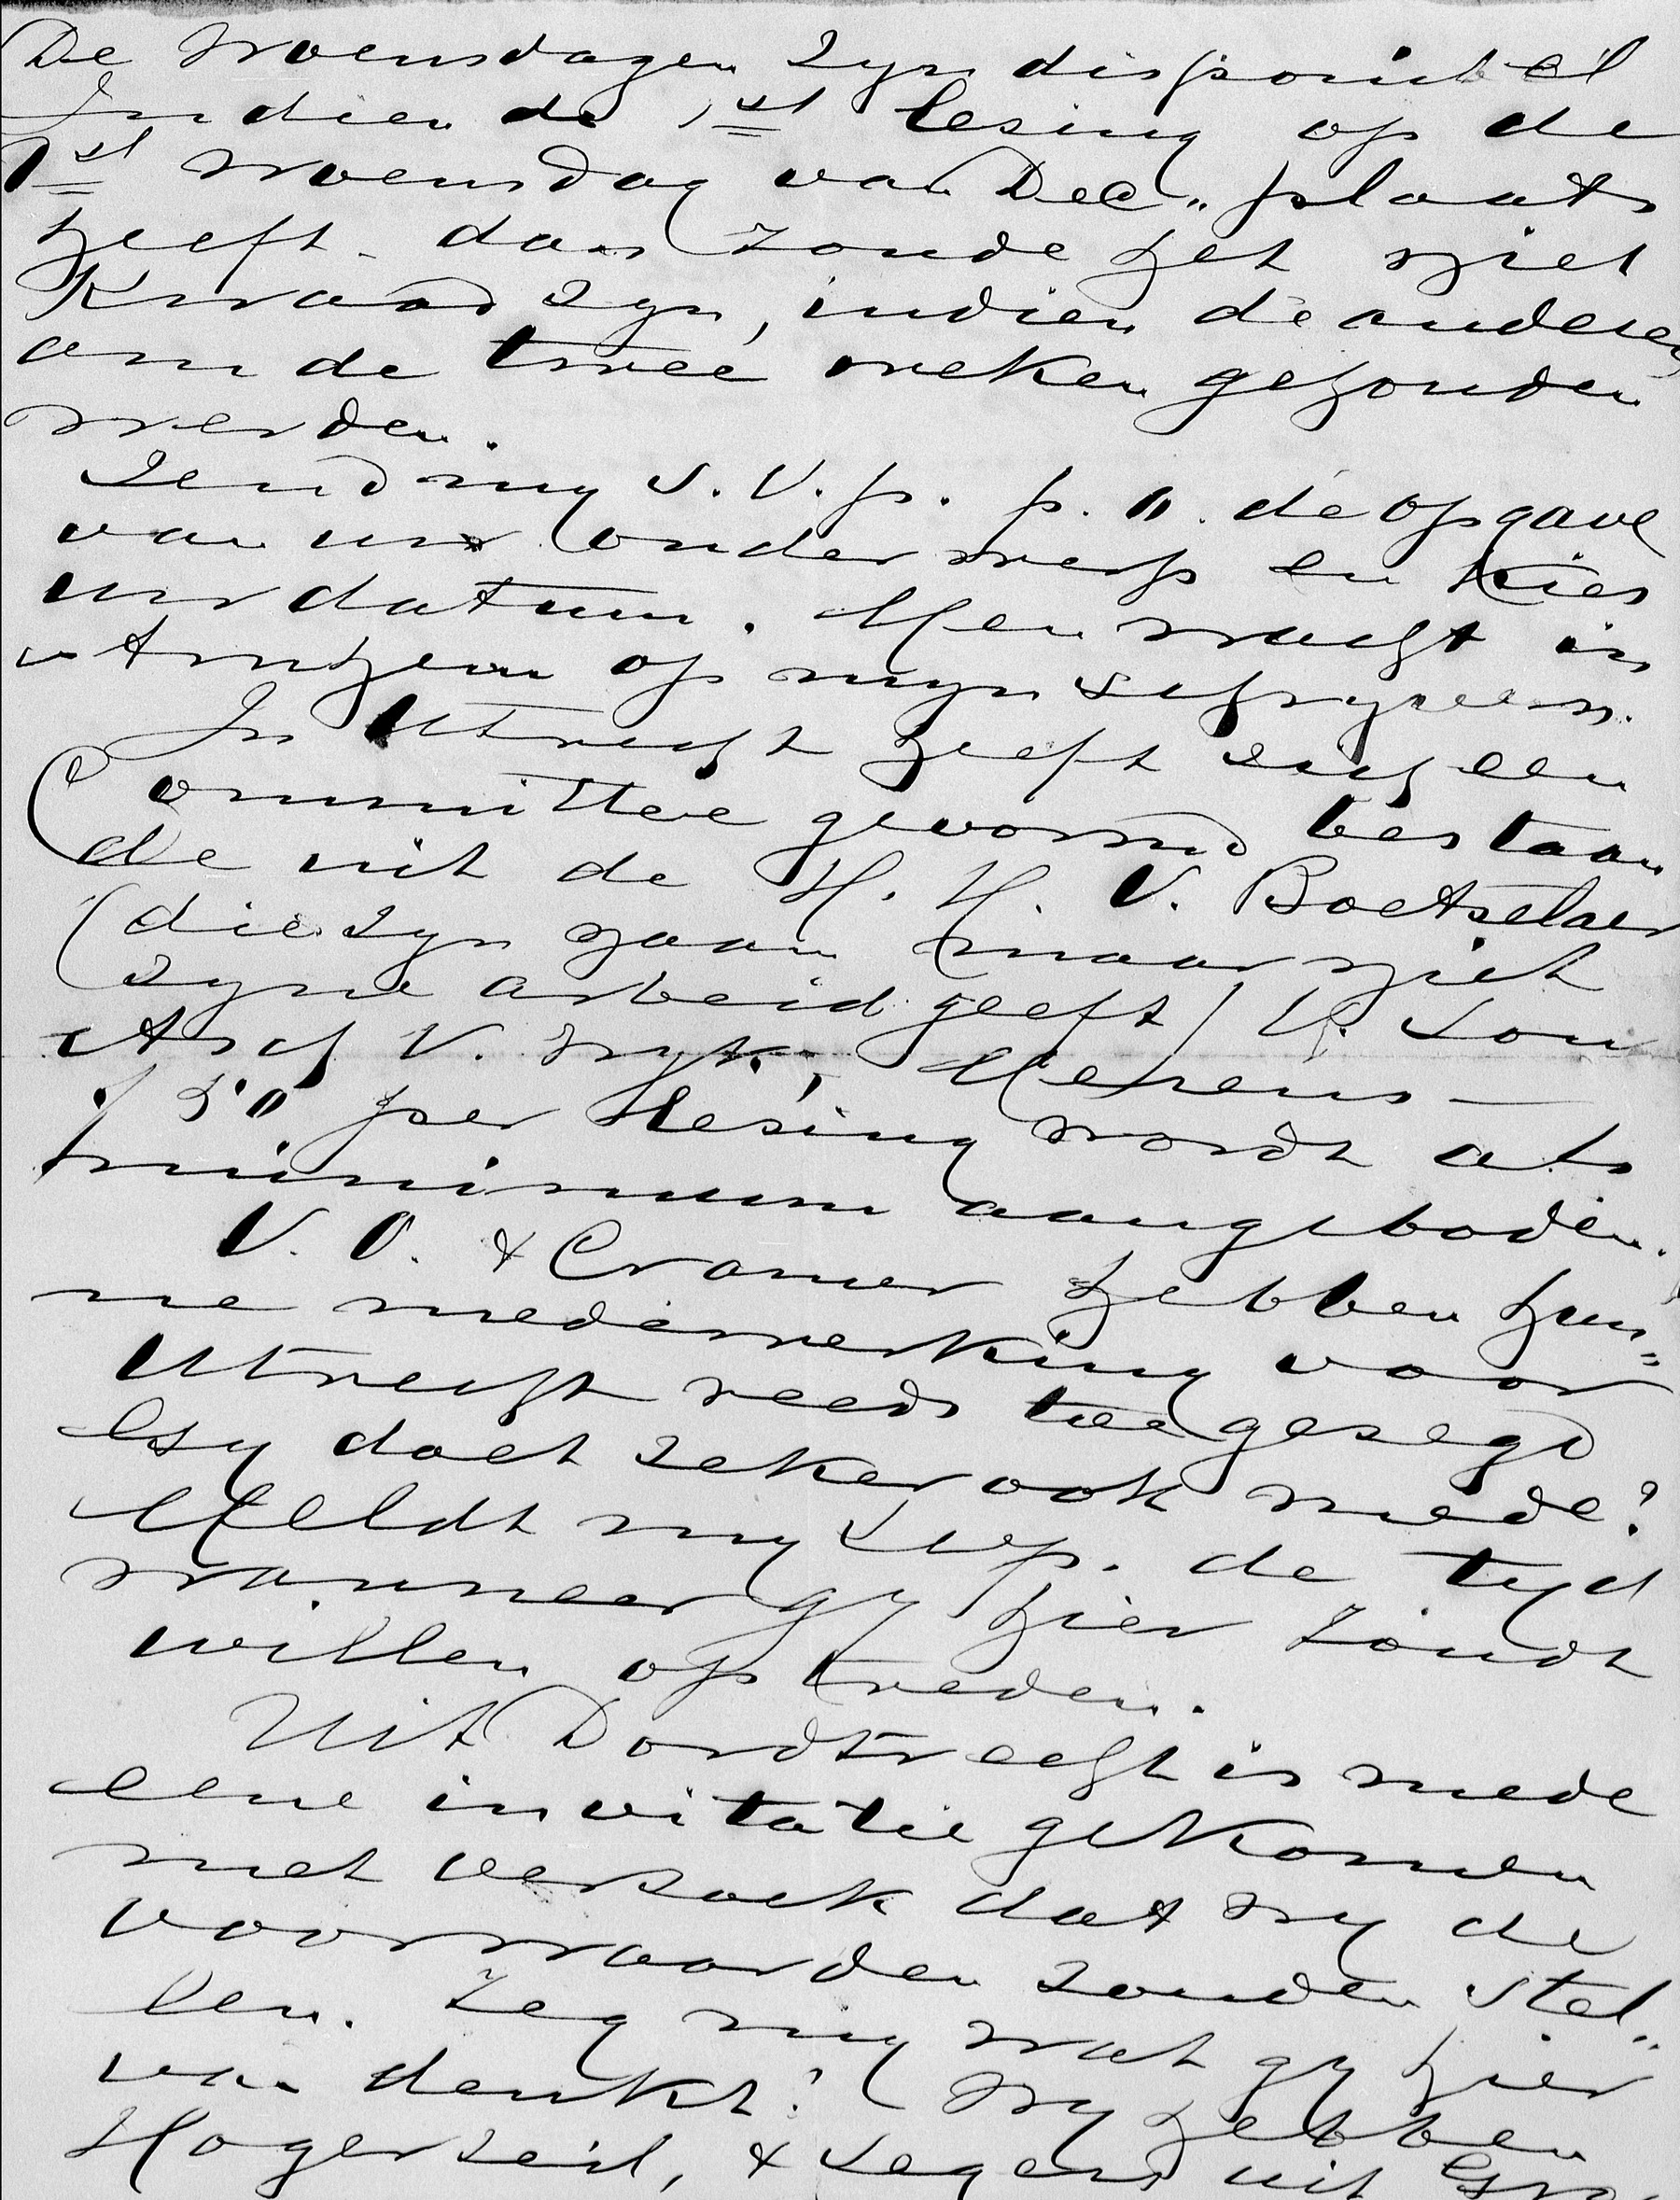 De woensdagen zyn disponibel
Indien de 1st lezing op de
1st woensdag van Dec. plaats
heeft dan zoude het niet
kwaad zyn, indien de anderen
om de twee weken gehouden
werden.
Zend my s.v.p. p. o. de opgave
van uw onderwerp en kies
uw datum. Men wacht in
Arnhem op myn schryven.
In Utrecht heeft zich een
Committee gevormd bestaan
de uit de H. H. V. Boetzelaer
(die zyn naam maar niet
zyne arbeid geeft) V. Son
Asch V. Wyk, Merens —
f 50 per lezing wordt als
minimum aangeboden.
V. O. & Cramer hebben hun=
ne medewerking voor
Utrecht reeds toegezegd
Gy doet zeker ook mede?
Meldt my svp. de tyd
wanneer gy hier zoudt
willen optreden.
Uit Dordtrecht is mede
eene invitatie gekomen
met verzoek dat wy de
voorwaarden zouden stel=
len. Zeg my wat gy hier
van denkt? Wy hebben
Hogerzeil, & uit